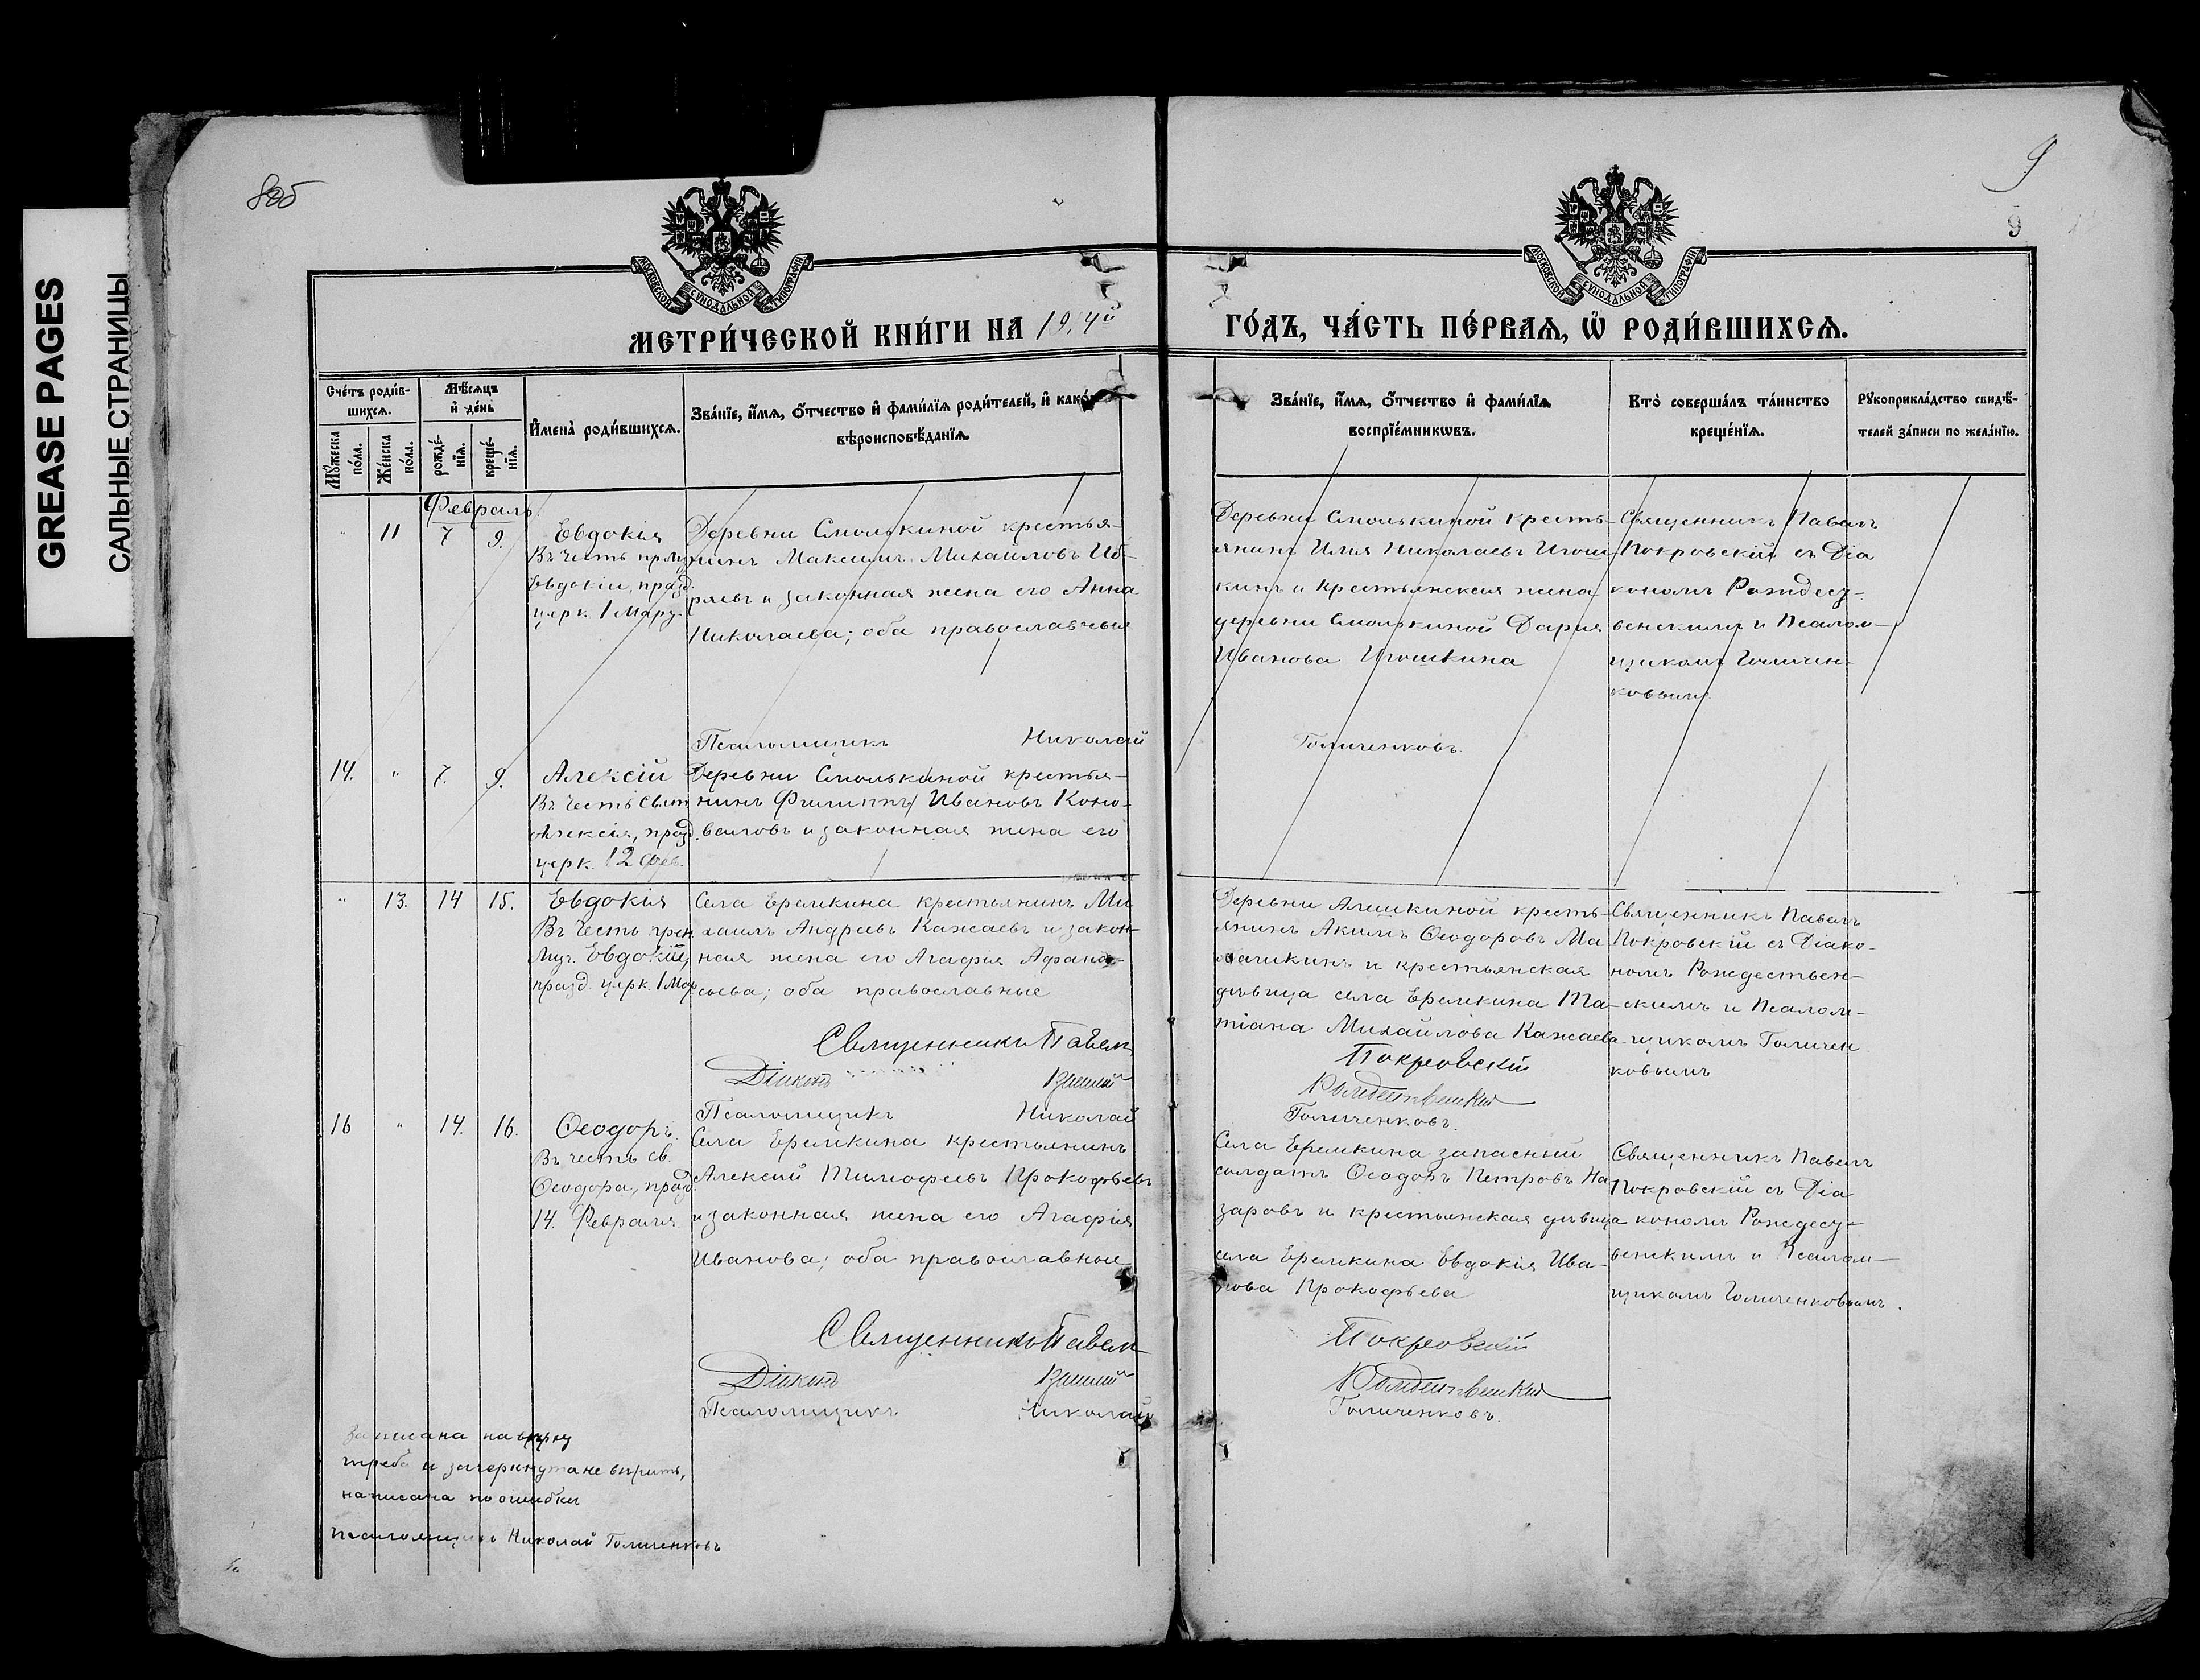 GREASE PAGES
САЛЬНЫЕ СТРАНИЦЫ
9
9
МОСКОВСКОЙ СѴНОДАЛЬНОЙ ТИПОГРАФІИ
МОСКОВСКОЙ СѴНОДАЛЬНОЙ ТИПОГРАФІИ
МЕТРИ́ЧЕСКОЙ КНИ́ГИ НА 1914й
ГО́ДЪ, ЧА́СТЬ ПЕ́РВАЯ, Ѡ҆ РОДИ́ВШИХСЯ.
Сче́тъ роди́в-
шихся.
Мѣ́сяцъ
и҆ де́нь
Мꙋ́жеска по́ла.
Же́нска по́ла.
рожде́-
нїя.
креще́-
нїя.
И҆мена̀ роди́вшихся.
Зва́нїе, и҆́мя, ѻ҆́тчество и҆ фами́лїя роди́телей, и҆ како́гѡ
вѣроисповѣ́данїя.
Зва́нїе, и҆́мя, ѻ҆́тчество и҆ фами́лїя
воспрїе́мникѡвъ.
Кто̀ соверша́лъ та́инство
креще́нїя.
Рꙋкоприкла́дство свидѣ́-
телей за́писи по жела́нїю.
Февраль
" 11 7 9.
Евдокія
Въ честь пр. муч.
Евдокіи, празд.
церк. 1 Мар.
Деревни Смолькиной крестья-
нинъ Максимъ Михайловъ Иб-
ряевъ и законная жена его Анна
Николаева; оба православные
Псаломщикъ Николай
Деревни Смолькиной кресть-
янинъ Илія Николаевъ Игош-
кинъ и крестьянская жена
деревни Смолькиной Дарія
Иванова Игошкина
Голиченковъ.
Священникъ Павелъ
Покровскій съ Діа
кономъ Рождест-
венскимъ и Псалом-
щикомъ Голичен-
ковымъ
14. " 7. 9.
Алексій
Въ честь Свят.
Алексія, празд.
церк. 12 Фев.
Деревни Смолькиной крестья-
нинъ Филиппъ Ивановъ Коно-
валовъ и законная жена его
" 13. 14 15.
Евдокія
Въ честь преп.
Муч. Евдокіи,
празд. церк. 1 Мар
Села Еремкина крестьянинъ Ми
хаилъ Андреевъ Кажаевъ и закон-
ная жена его Агафія Афана-
сьева; оба православные
Священникъ Павелъ
Діаконъ
Псаломщикъ Николай
Деревни Алешкиной кресть-
янинъ Акимъ Ѳеодоровъ Ма
лашкинъ и крестьянская
дѣвица села Еремкина Та-
тіана Михайлова Кажаева
Покровскій
Рождественскій
Голиченковъ.
Священникъ Павелъ
Покровскій съ Діако-
номъ Рождествен-
скимъ и Псалом-
щикомъ Голичен
ковымъ
16 " 14. 16.
Ѳеодоръ.
Въ честь св.
Ѳеодора, празд.
14. Февраля.
Села Еремкина крестьянинъ
Алексій Тимофеевъ Прокофьевъ
и законная жена его Агафія
Иванова; оба православные
Священникъ Павелъ
Діаконъ
Псаломщикъ Николай
Села Еремкина запасный
солдатъ Ѳеодоръ Петровъ На
заровъ и крестьянская дѣвица
села Еремкина Евдокія Ива-
нова Прокофьева
Покровскій
Рождественскій
Голиченковъ.
Священникъ Павелъ
Покровскій съ Діа
кономъ Рождест-
венскимъ и Псалом-
щикомъ Голиченковымъ.
Записана на верху
треба и зачеркнута не вѣрить,
написана по ошибки
псаломщикъ Николай Голиченковъ